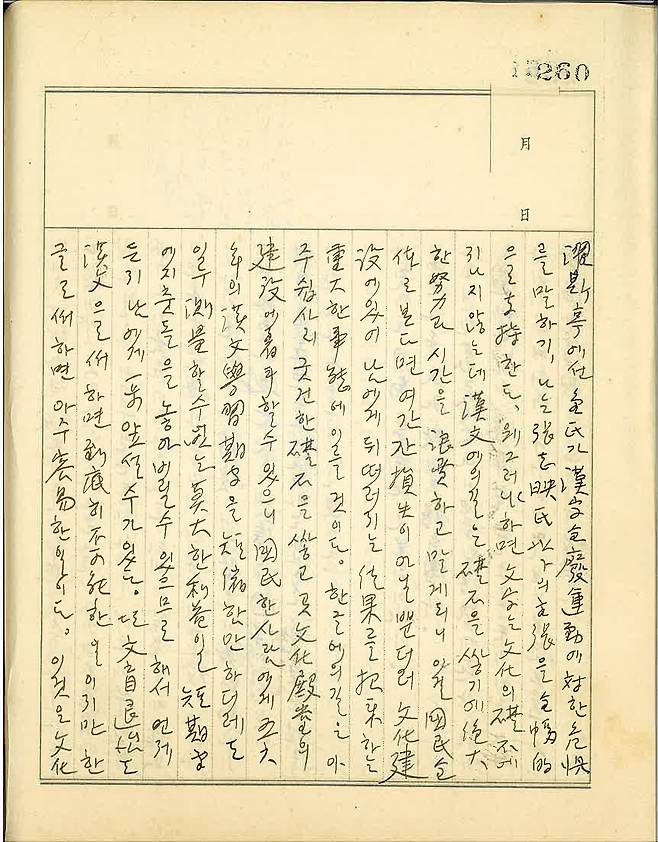 260
月
日
澤斯亭에선 金氏가 漢字全廢運動에 対한 危惧
를 말하기, 나는 張志映氏 以下의 主張을 全幅的
으로 支持한다. 왜그러냐하면 文字는 文化의 礎石에
지나지 않는데 漢文에의 길은 礎石을 쌓기에 絶大
한 努力과 시간을 浪費하고 말게되니 이것 國民全
体로 본다면 여간한 損失이 아닐 뿐더러 文化建
設에있어 남에게 뒤떠러지는 結果를 招来하는
重大한 事態에 이를것이다. 한글에의 길은 아
주 쉽사리 굳건한 礎石을 쌓고 곳 文化殿堂의
建設에 着手할수 있으니 國民 한사람에게 五六
年의 漢文學習期間을 短縮한만 하더래도
일우 測量할수없는 莫大한 利益이일 短期間
에 지춧돌을 놓아버릴수 있으므로 해서 언제
든지 남에게 一步 앞설수가 있는. 또 文盲退治도
漢文으로써 하면 到底히 不可能한 일이지만 한
글로써 하면 아주 容易한일이다. 이것은 文化